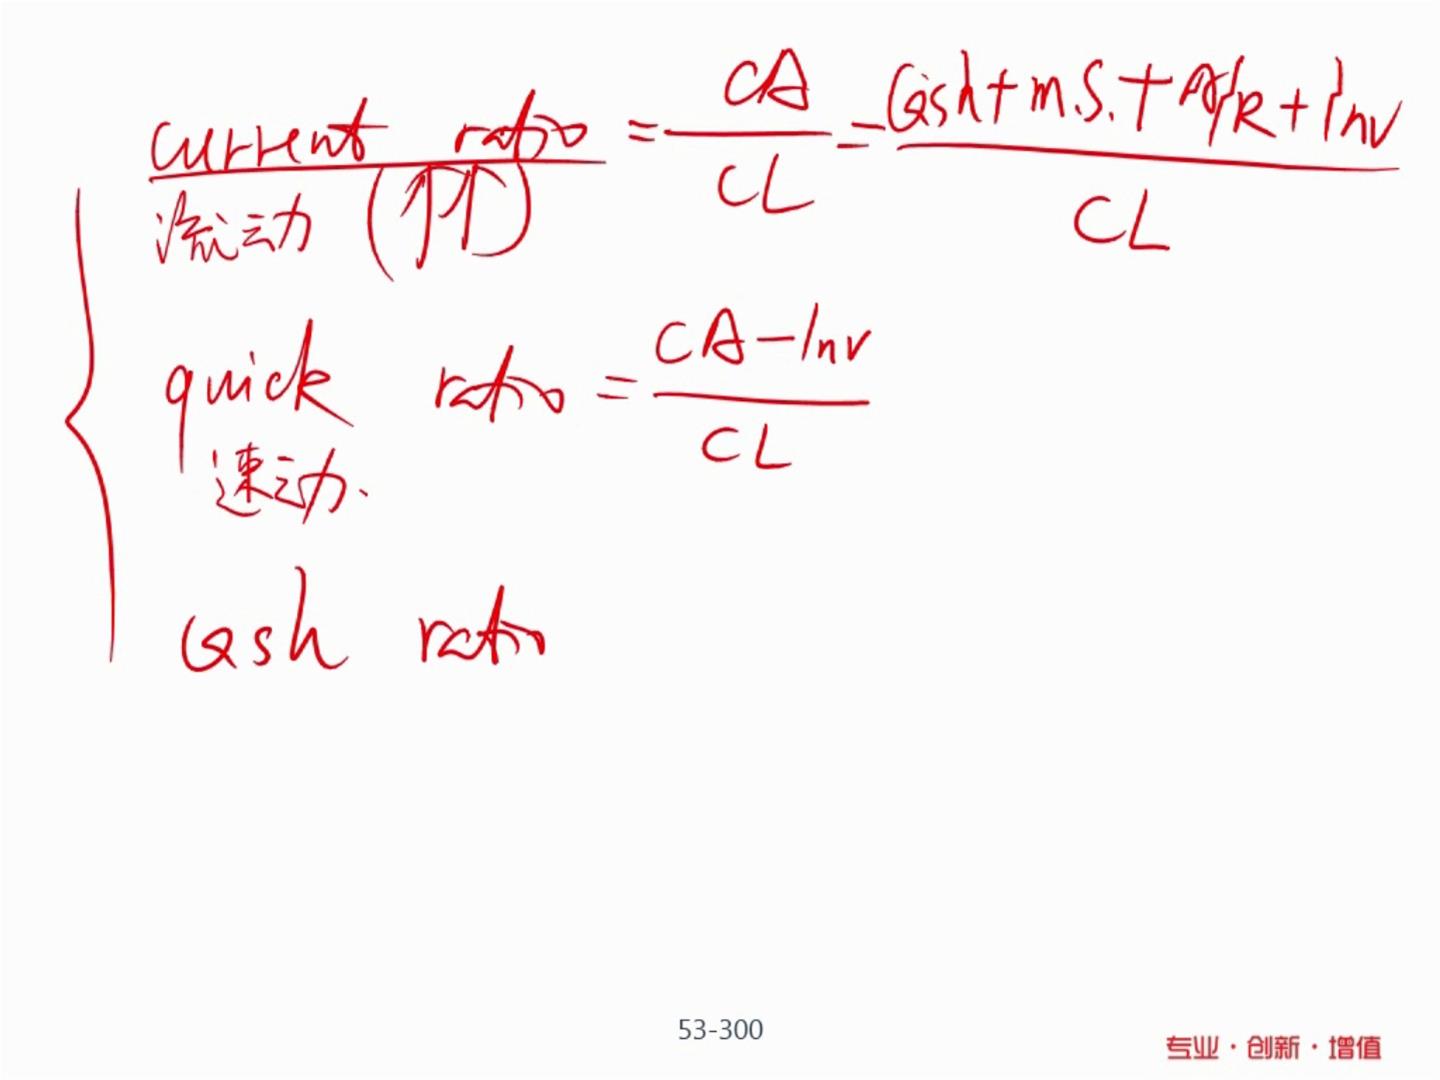 current ratio = CA / CL = Cash + m.S. + A/R + Inv / CL
流动 (↑↑)
quick ratio = CA - Inv / CL
速动.
Cash ratio
53-300
专业·创新·增值